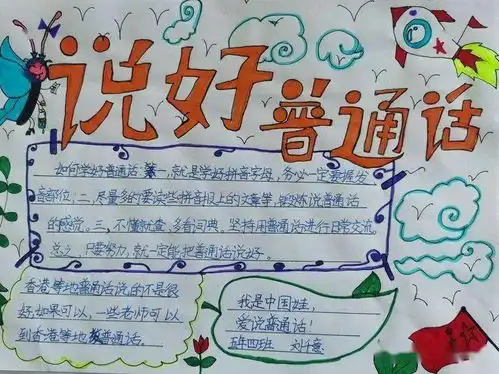 说好
普通话
如何学好普通话 第一,就是学好拼音字母,务必一定要摸发
音部位;二,尽量多的要读些拼音报上的文章等,锻炼说普通话
的感觉。三、不懂就查,多看词典,坚持用普通话进行日常交流,
总之,只要努力,就一定能把普通话说好。
香港等地普通话说的不是很
好,如果可以,一些老师可以
到香港等地教普通话。
我是中国娃,
爱说普通话!
四班 刘